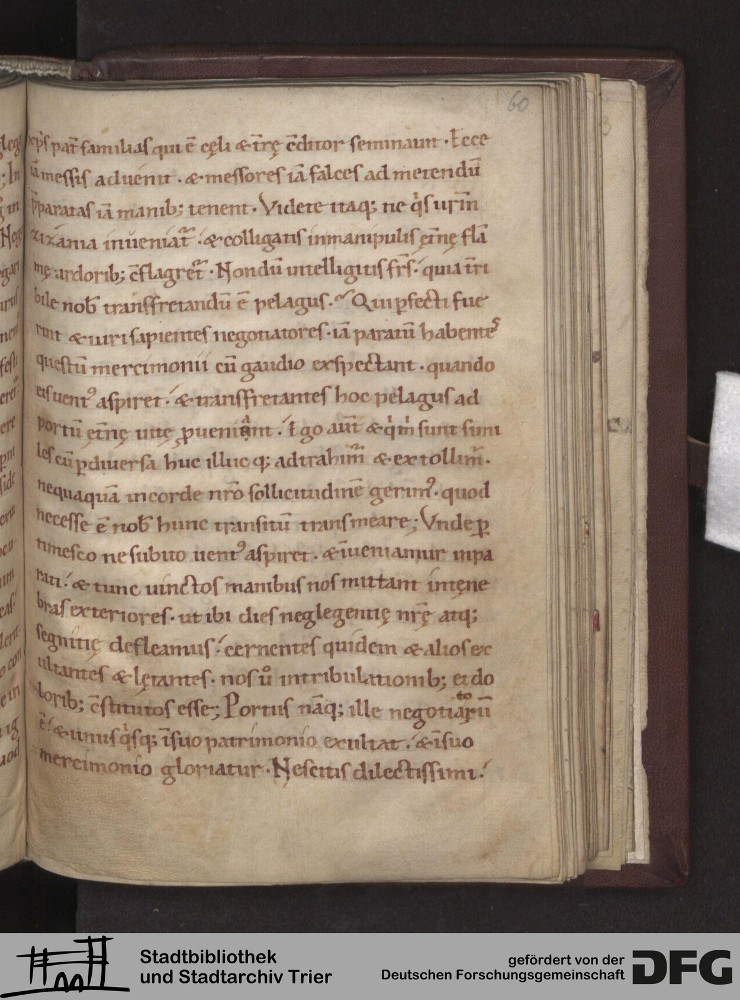 60
xp̄s pat̄ familias qui ē cęli & t̄rę c̄ditor seminauit · Ecce
iā messis aduenit · & messores iā falces ad metendū
p̄paratas iā manib; tenent · Videte itaq; ne q̓s urm̄
zizania inueniat᷑ · & colligatis in manipulis et̄nę flā
mę ardorib; c̄flagret᷑ · Nondū intelligitis fr̄s · quia t̄ri
bile nob̄ transfretandū ē pelagus · Qui ꝑfecti fue
rint & uiri sapientes negotiatores · iā paratū habentes
questū mercimonii cū gaudio exspectant · quando
eis uent᷒ aspiret · & transfretantes hoc pelagus ad
portū et̄nę uitę ꝓueniant · Ego aut̄ & q̓ m̄ sunt simi
les cū ꝑ diuersa huc illuc q; adtrahim᷒ & extollim᷒ ·
nequaquā in corde nr̄o sollicitudinē gerim᷒ · quod
necesse ē nob̄ hunc transitū transmeare; Vnde ꝑ
timesco ne subito uent᷒ aspiret · & īueniamur inpa
rati · & tunc uinctos manibus nos mittant in tene
bras exteriores · ut ibi dies neglegentię nr̄ę atq;
segnitię defleamus · cernentes quidem & alios ex
ultantes & lętantes · nos ů in tribulationib; et do
lorib; c̄stitutos esse; Portus nāq; ille negotiatorū
ē · & unusq̓sq; ī suo patrimonio exultat · & ī suo
mercimonio gloriatur · Nescitis dilectissimi ·
Stadtbibliothek
und Stadtarchiv Trier
gefördert von der
Deutschen Forschungsgemeinschaft
DFG